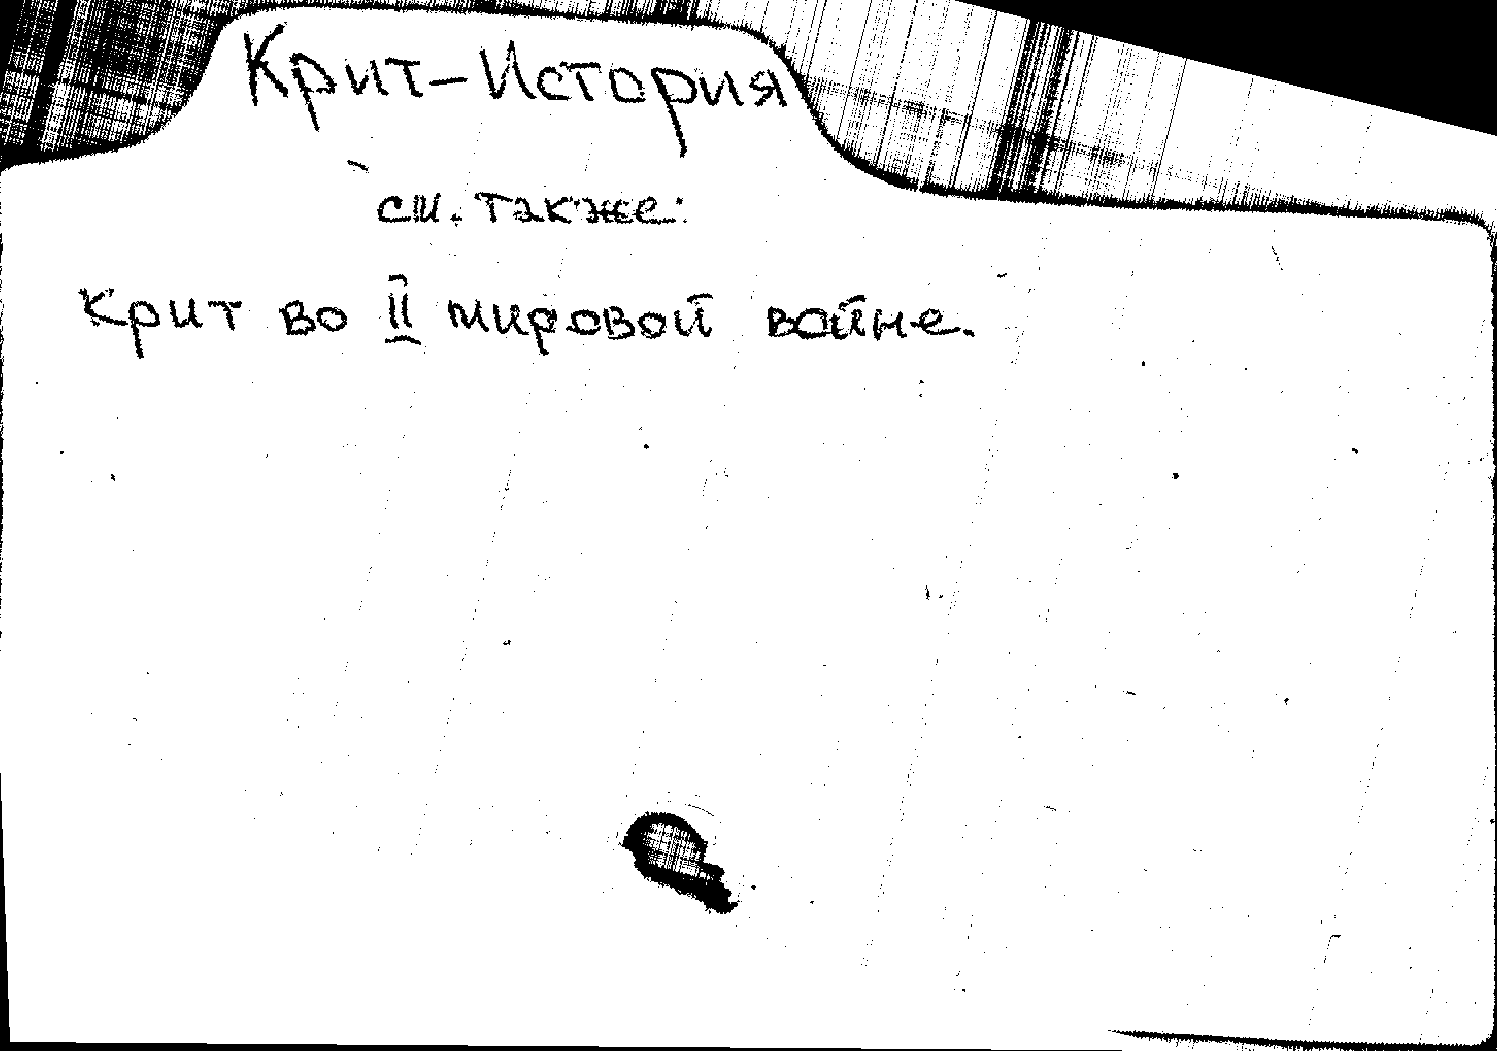 Крит-История
см. также:
Крит во II мировой войне.